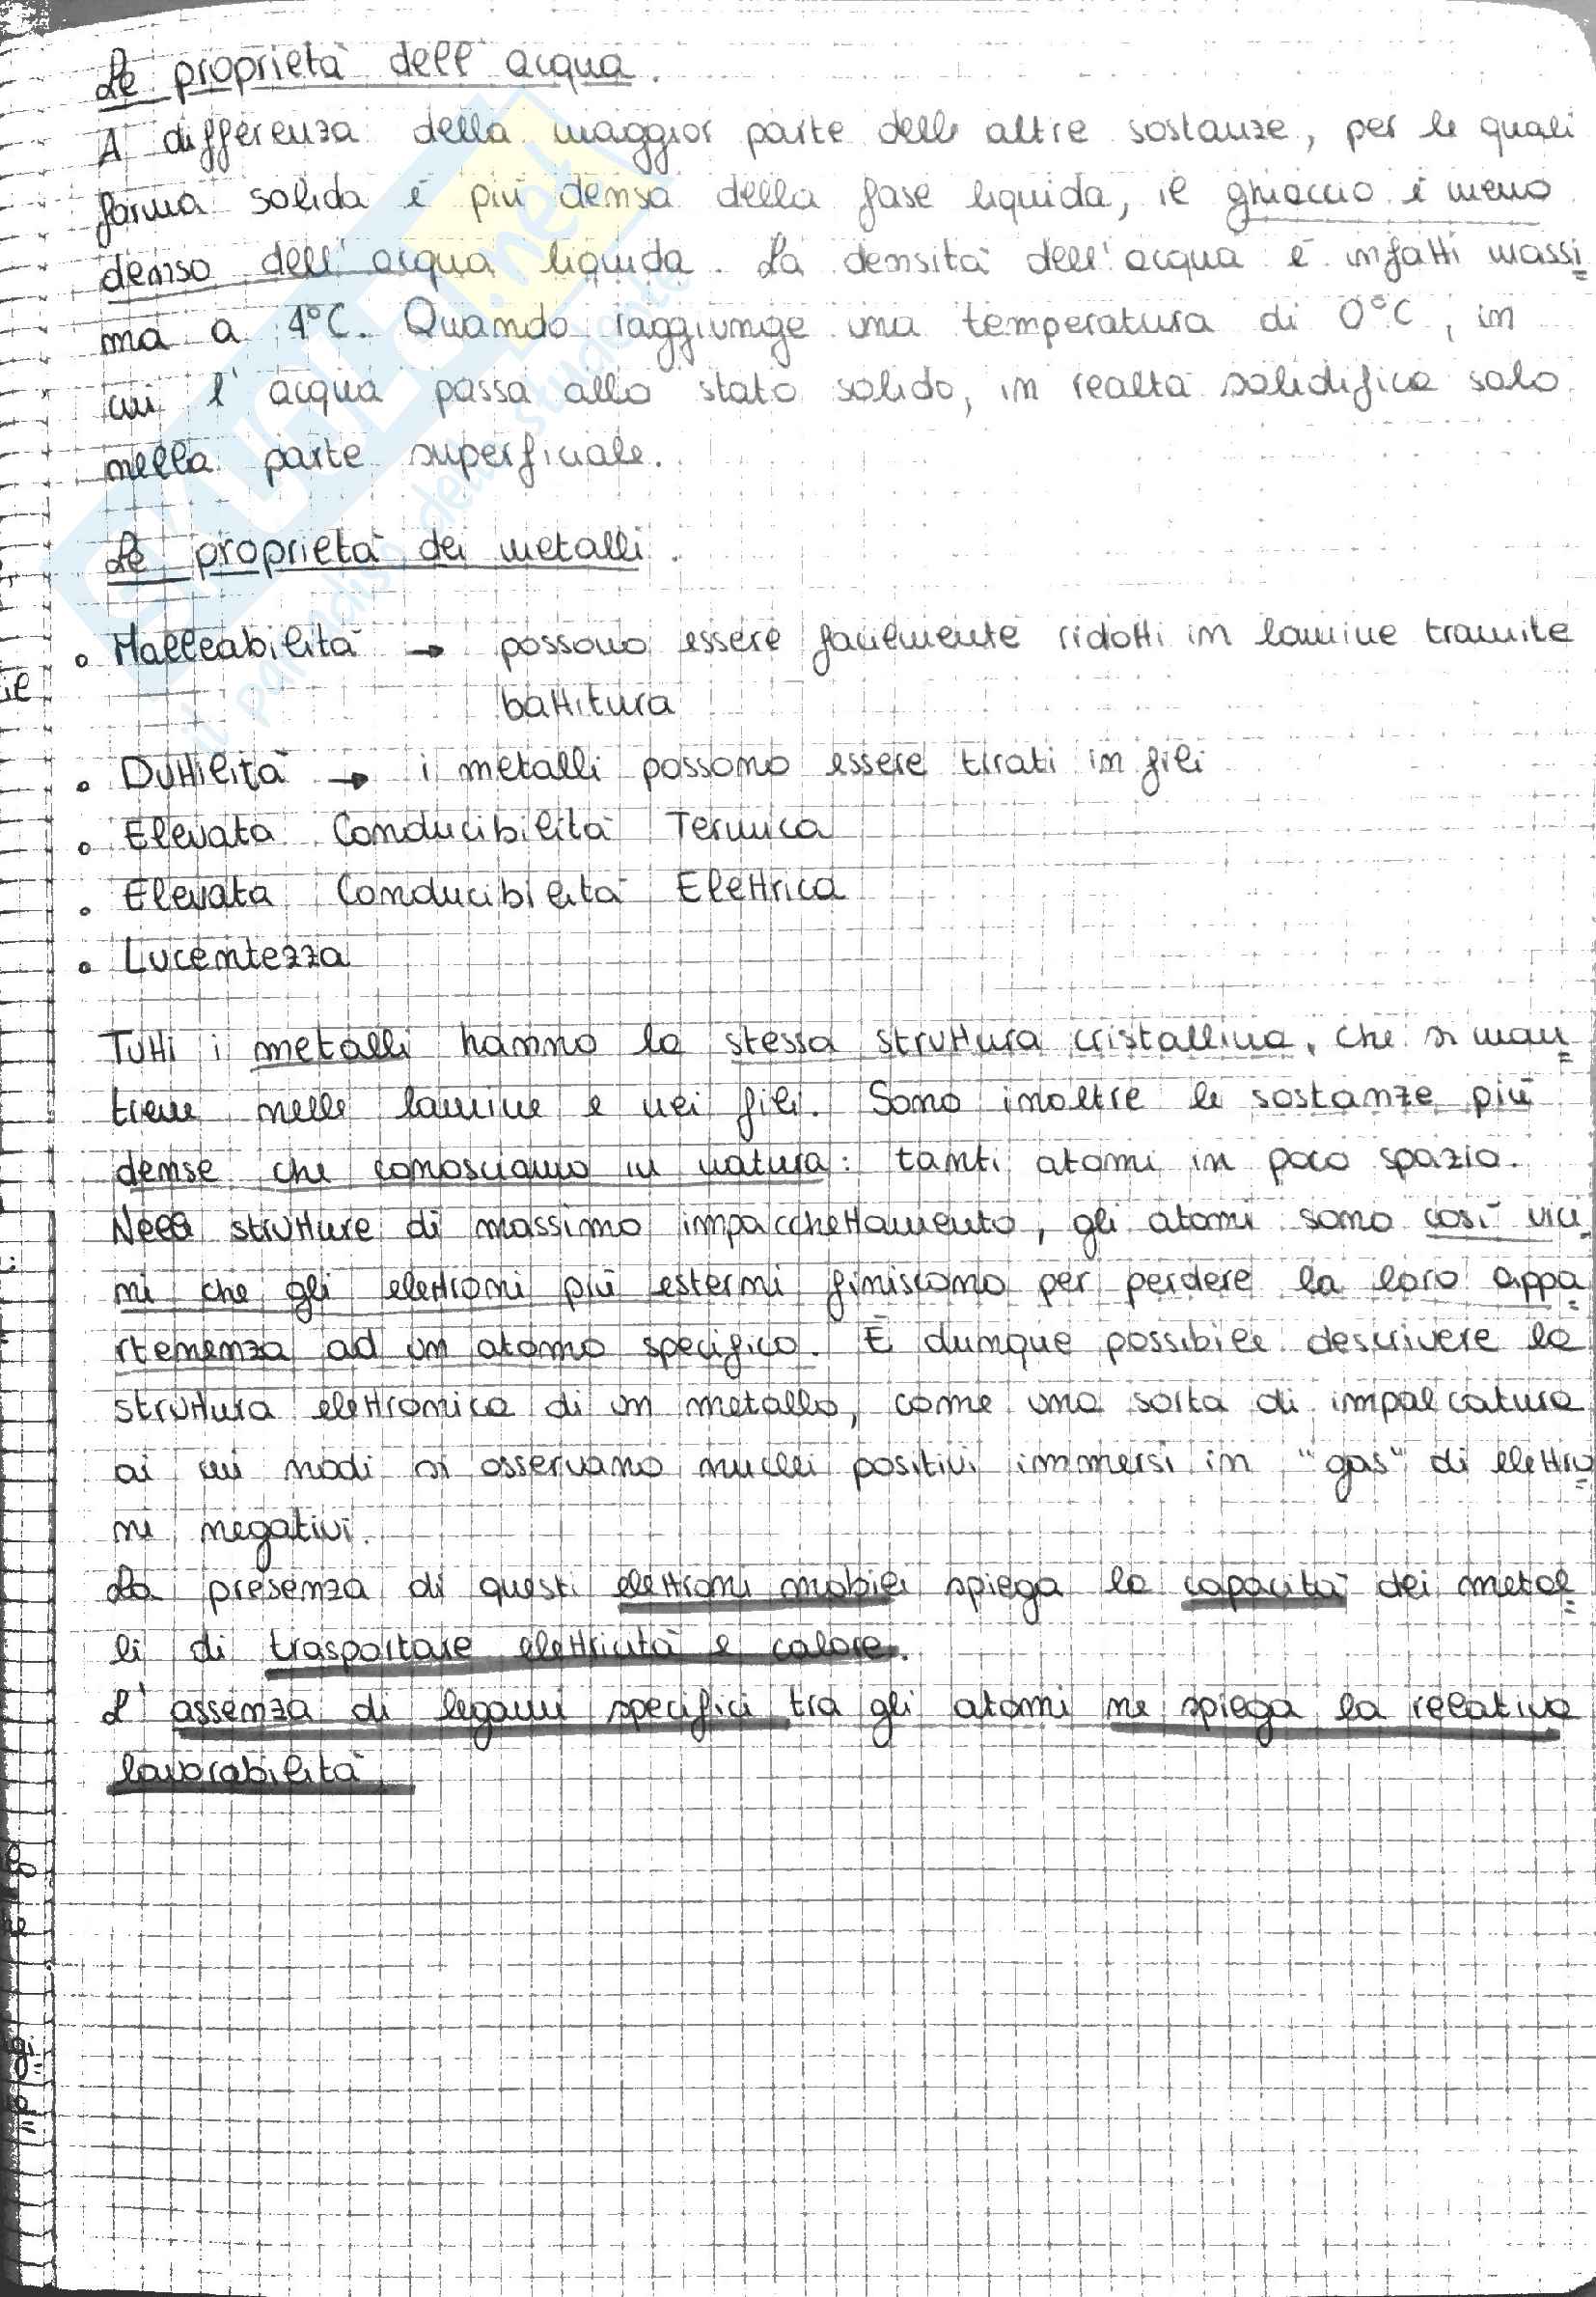 Le proprietà dell'acqua.
A differenza della maggior parte delle altre sostanze, per le quali
forma solida è più densa della fase liquida, il ghiaccio è meno
denso dell'acqua liquida. La densità dell'acqua è infatti massi
ma a 4°C. Quando raggiunge una temperatura di 0°C, in
cui l'acqua passa allo stato solido, in realtà solidifica solo
nella parte superficiale.
Le proprietà dei metalli.
• Malleabilità → possono essere facilmente ridotti in lamine tramite
battitura
• Duttilità → i metalli possono essere tirati in fili
• Elevata Conducibilità Termica
• Elevata Conducibilità Elettrica
• Lucentezza
Tutti i metalli hanno la stessa struttura cristallina, che si man
tiene nelle lamine e nei fili. Sono inoltre le sostanze più
dense che conosciamo in natura: tanti atomi in poco spazio.
Nella strutture di massimo impacchettamento, gli atomi sono così vici
ni che gli elettroni più esterni finiscono per perdere la loro appa
rtenenza ad un atomo specifico. È dunque possibile descrivere la
struttura elettronica di un metallo, come una sorta di impalcatura
ai cui nodi si osservano nuclei positivi immersi in "gas" di elettro
ni negativi.
La presenza di questi elettroni mobili spiega la capacità dei metal
li di trasportare elettricità e calore.
L'assenza di legami specifici tra gli atomi ne spiega la relativa
lavorabilità.